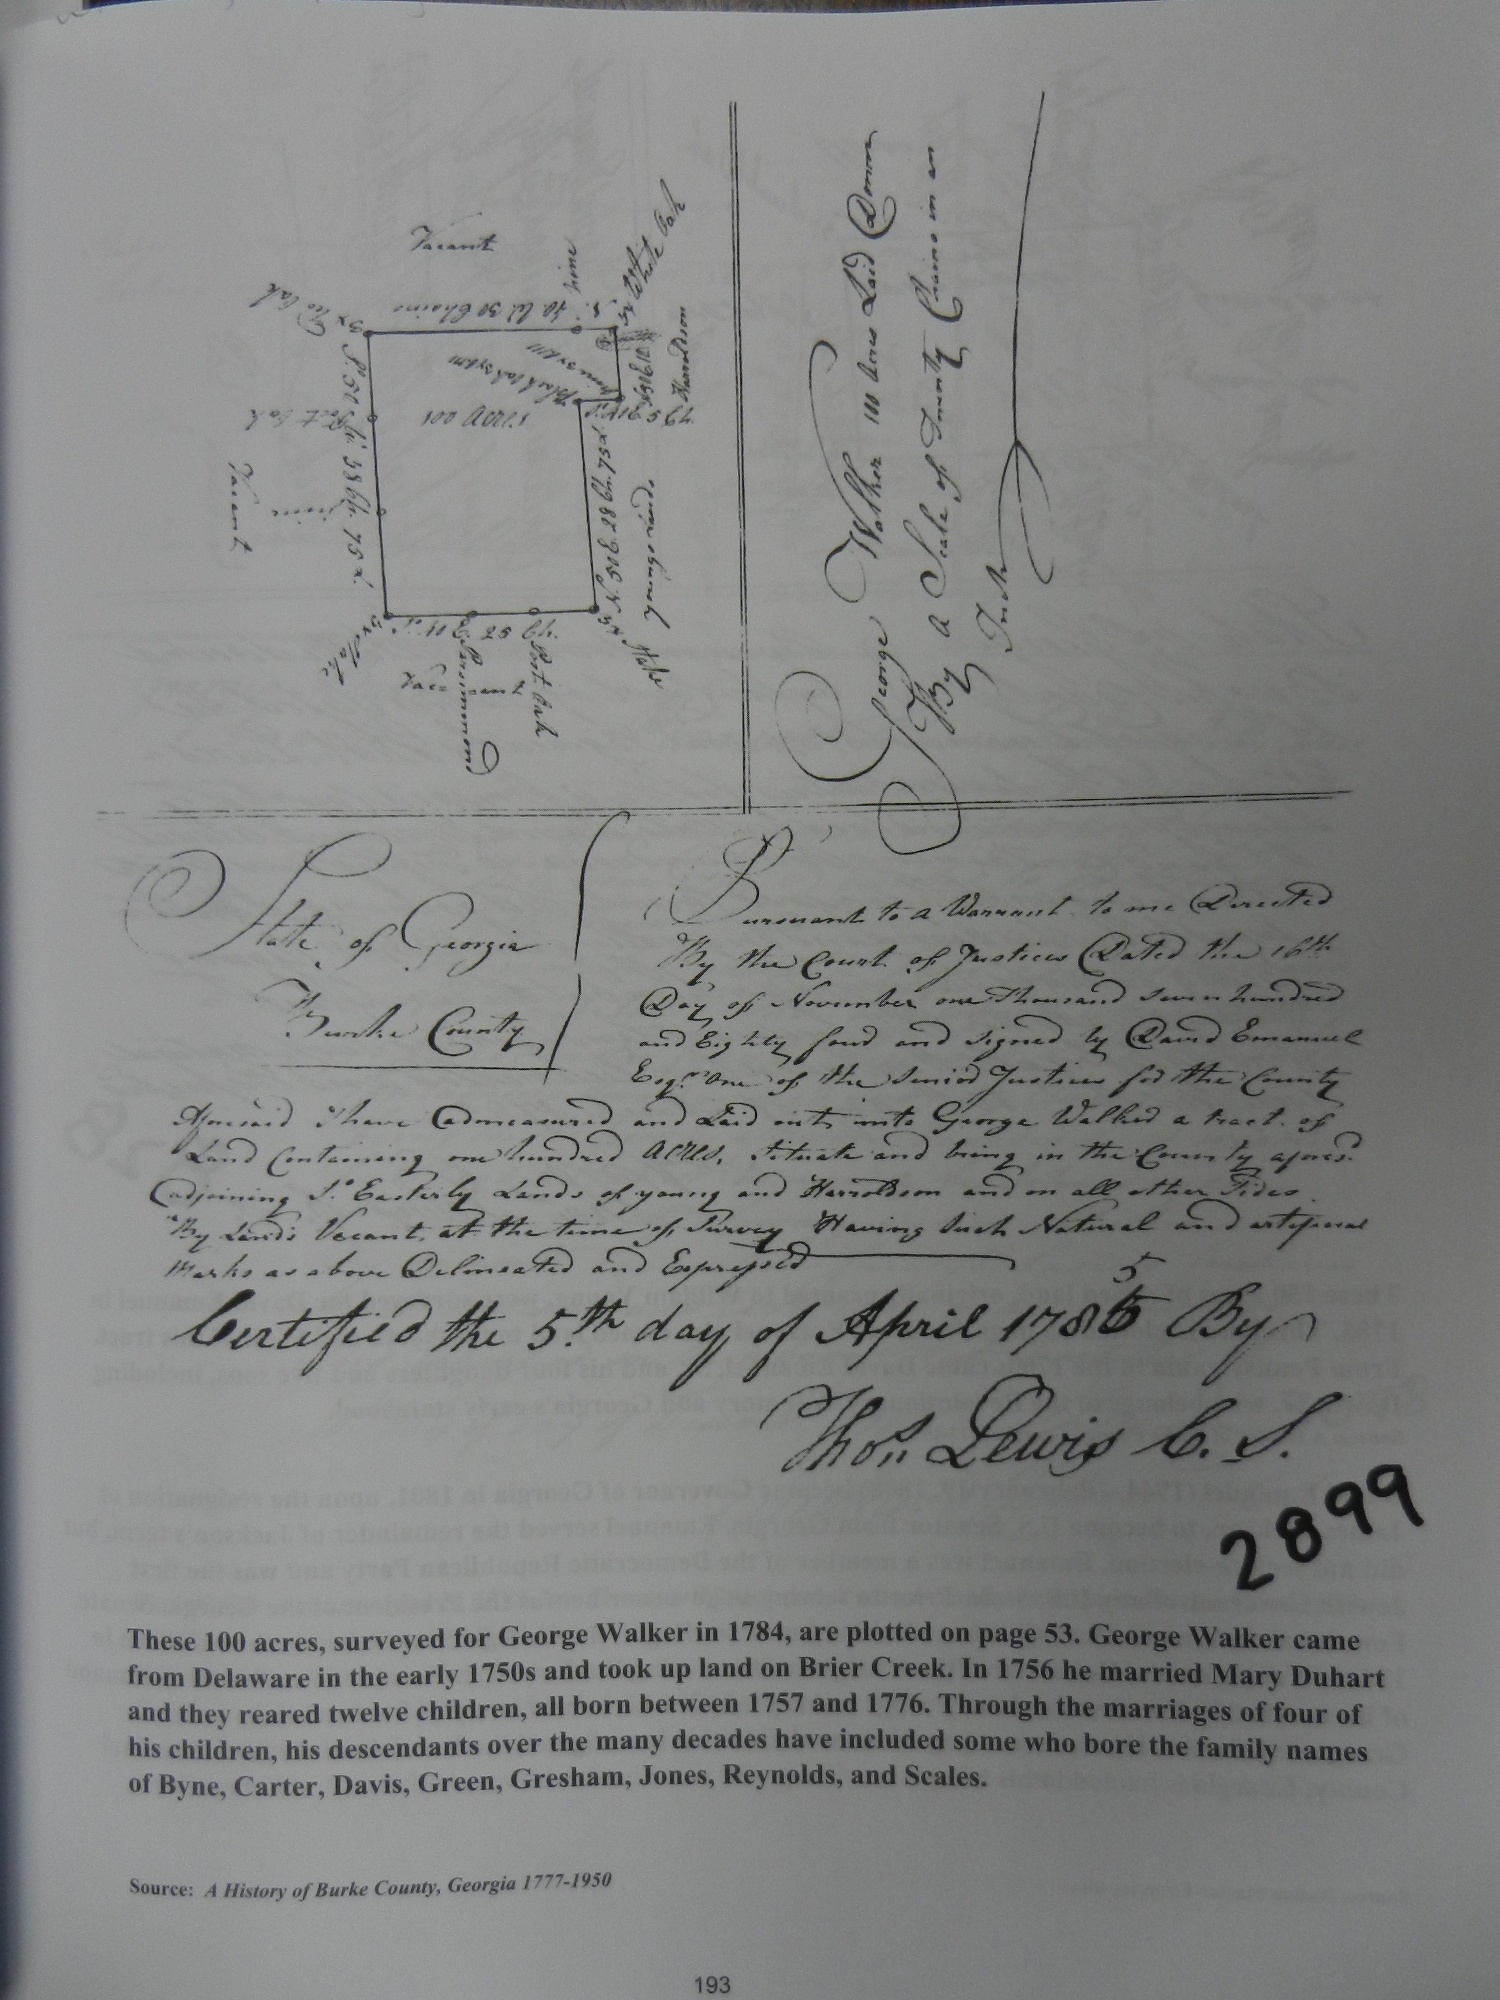 Vacant
Pine
White Oak
Harroldson
100 Acres
Post Oak
Pine
Vacant
young Lands
Stake
Stake
Vacant
Persimmond
Post Oak
George Walker 100 Acres Laid Down
By a Scale of Twenty Chains in an
Inch
State of Georgia
Burke County
Pursuant to a Warrant to me Directed
By the Court of Justices Dated the 16th
Day of November one Thousand Seven hundred
and Eighty four and signed by David Emanuel
Esqr. one of the Senior Justices for the County
Aforesaid I have Admeasured and Laid out unto George Walker a tract of
Land Containing one hundred Acres, Situate and being in the County afores.d
adjoining So. Easterly Lands of young and Harroldson and on all other Sides
By Lands Vacant at the time of Survey Having Such Natural and artificial
Marks as above Delineated and Expressed
Certified the 5th day of April 1785 By
Thos. Lewis C. S.
2899
These 100 acres, surveyed for George Walker in 1784, are plotted on page 53. George Walker came
from Delaware in the early 1750s and took up land on Brier Creek. In 1756 he married Mary Duhart
and they reared twelve children, all born between 1757 and 1776. Through the marriages of four of
his children, his descendants over the many decades have included some who bore the family names
of Byne, Carter, Davis, Green, Gresham, Jones, Reynolds, and Scales.
Source: A History of Burke County, Georgia 1777-1950
193